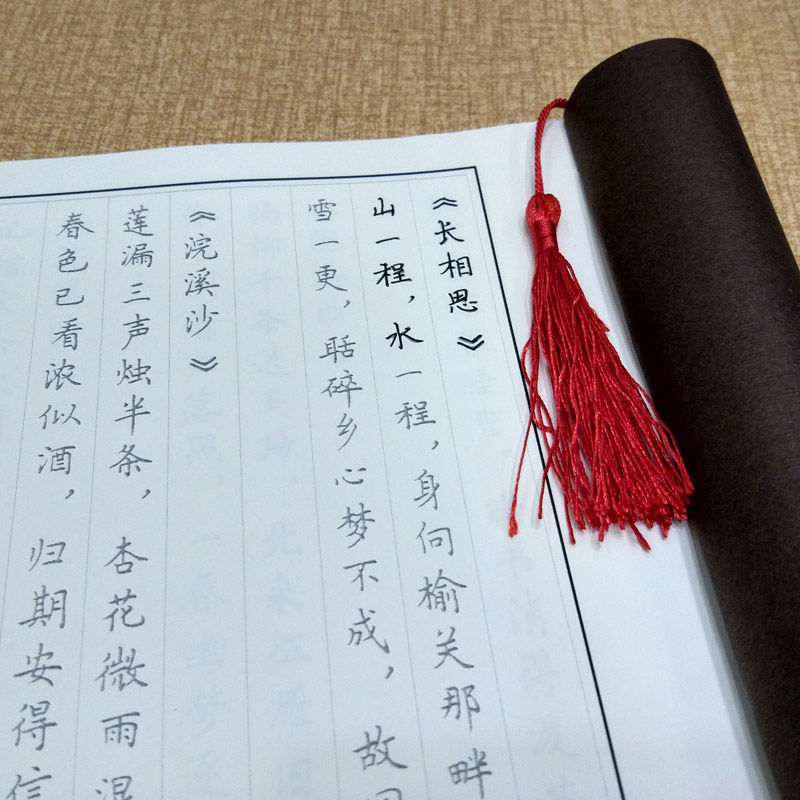 《长相思》
山一程，水一程，身向榆关那畔
雪一更，聒碎乡心梦不成，故
《浣溪沙》
莲漏三声烛半条，杏花微雨
春色已看浓似酒，归期安得信